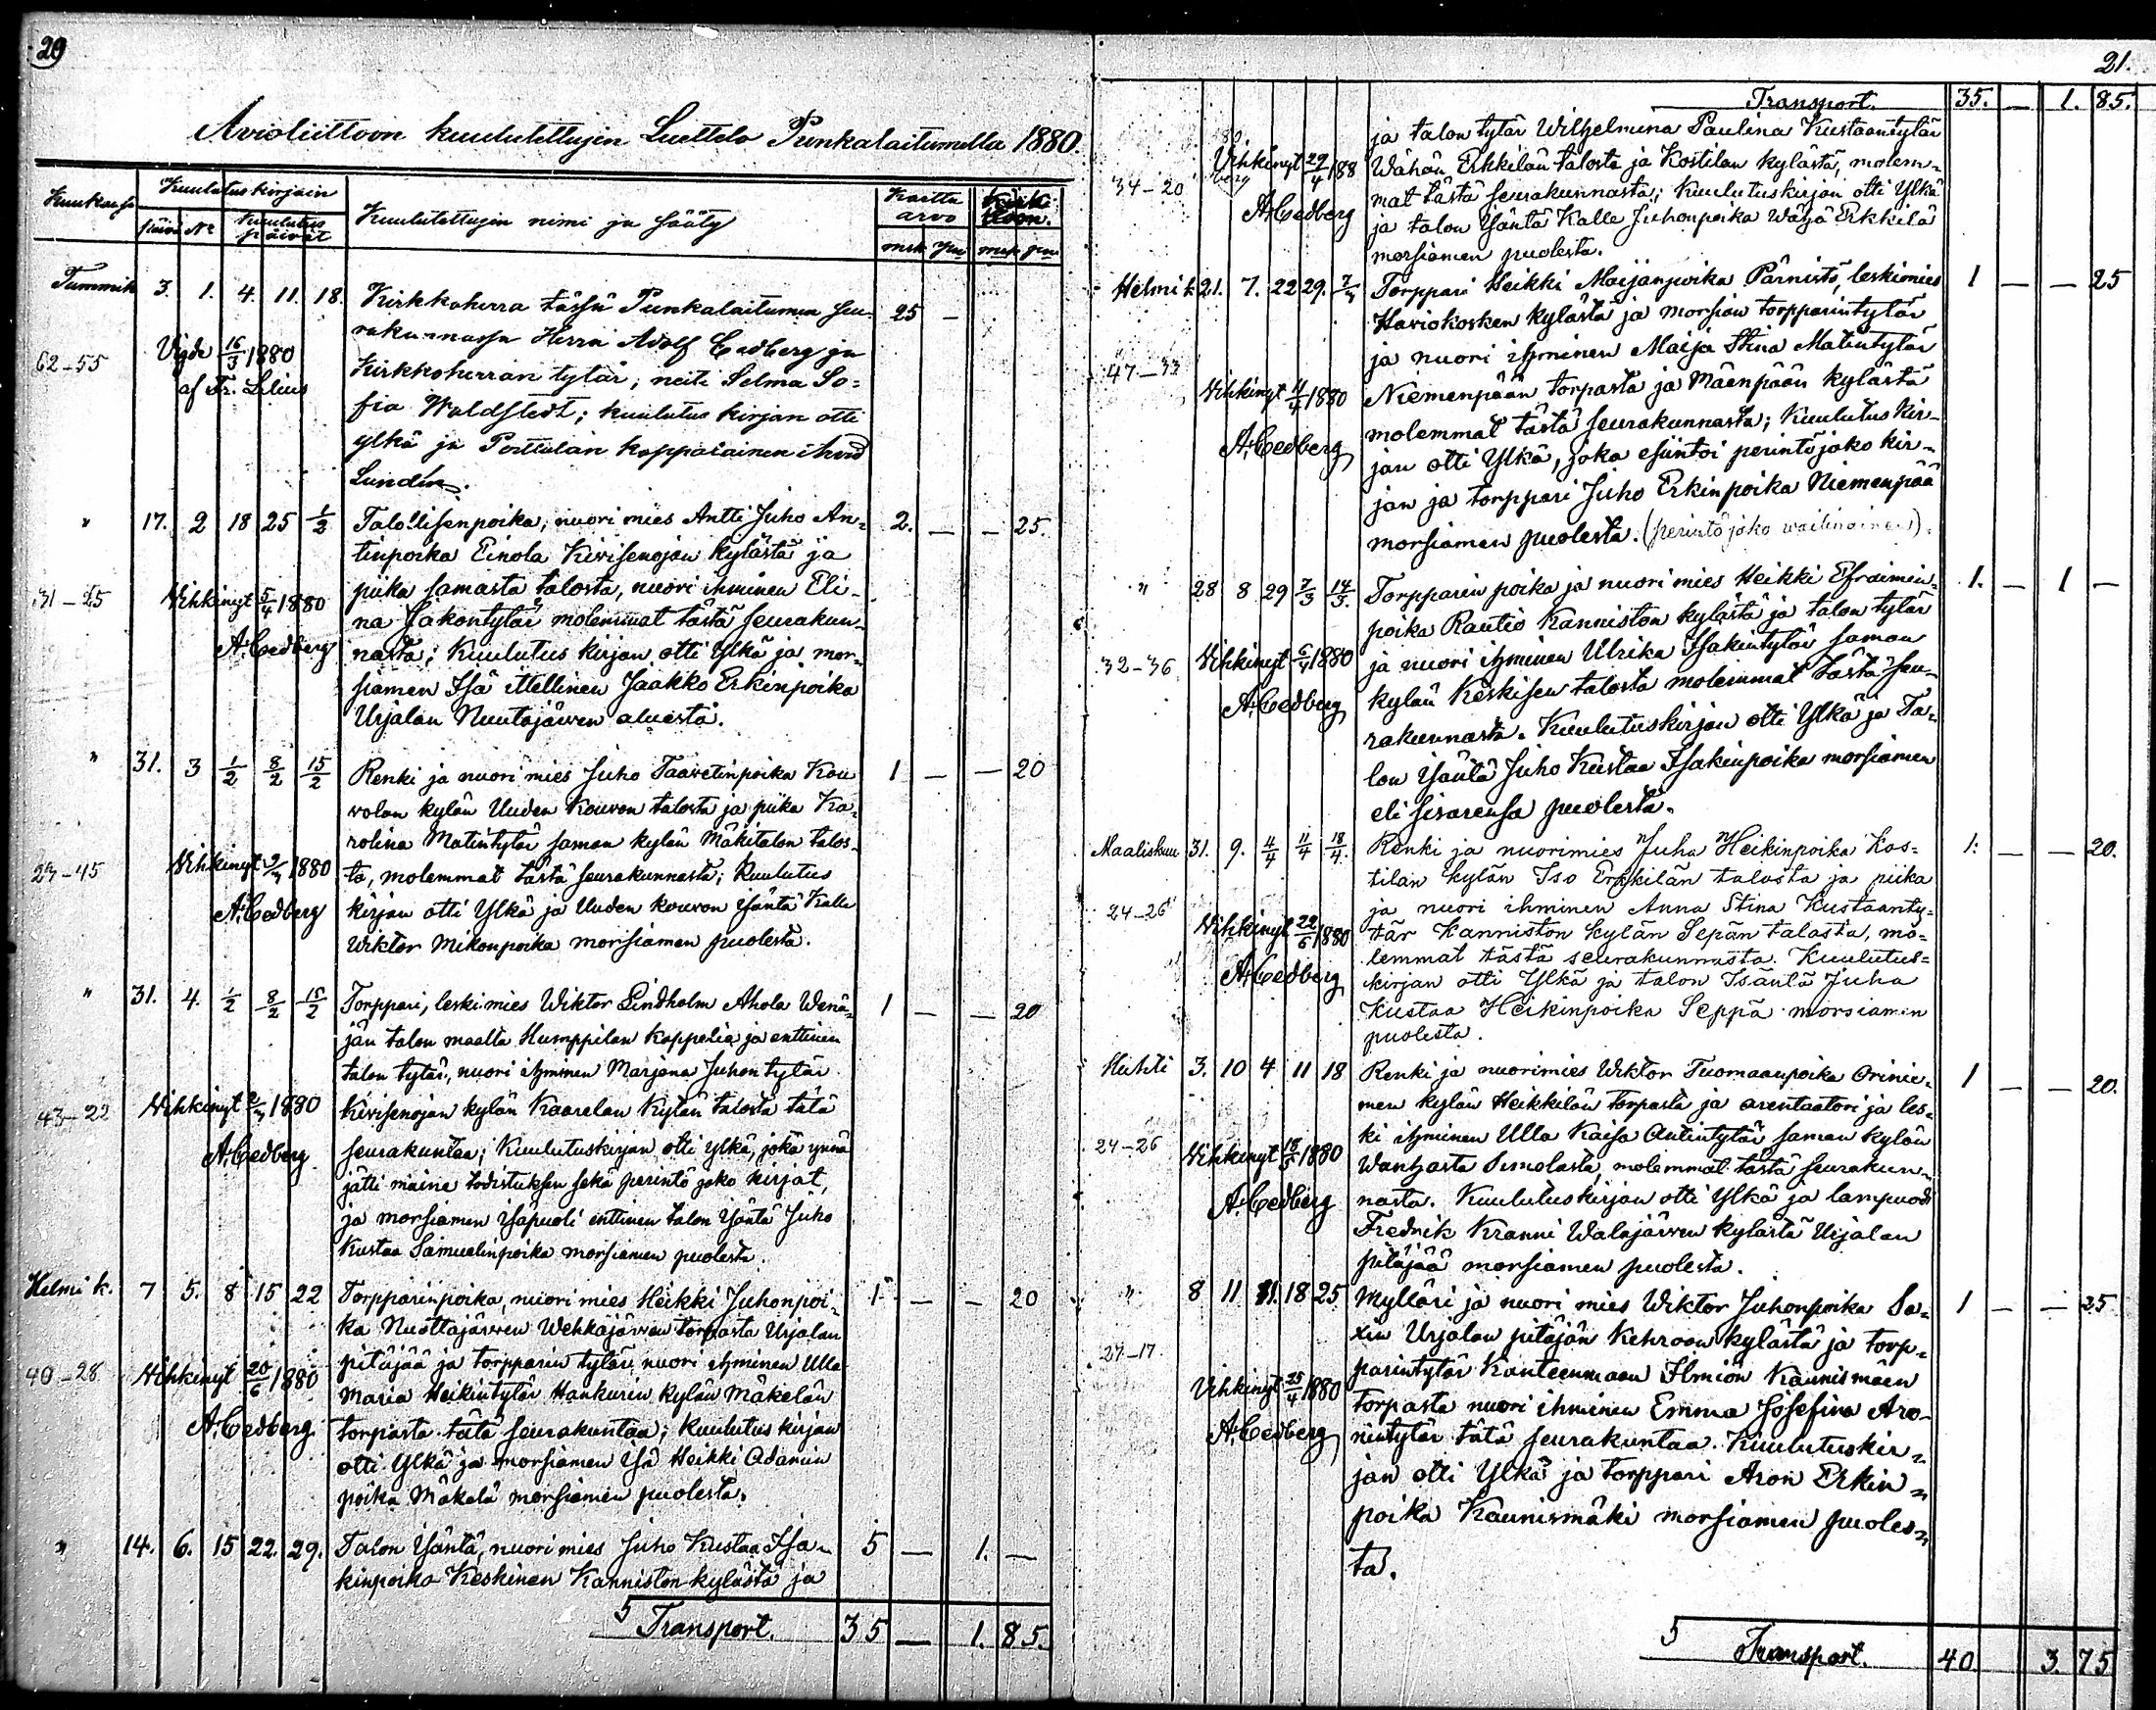 20
Avioliittoon kuulutettujen Luettelo Punkalaitumella 1880.
Kuukausi
Kuulutuskirjain
päivä No
kuulutus päivät
Kuulutettujen nimi ja sääty
Kartta arvo
Kirkkoon.
mrk pen mrk pen
Tammik 3. 1. 4. 11. 18. Kirkkoherra tässä Punkalaitumen seu- 25 —
rakunnassa Herra Adolf Cedberg ja
62-55 Vigde 16/3 1880 Kirkkoherran tytär, neiti Selma So-
af Fr. Lilius fia Waldstedt; kuulutus kirjan otti
ylkä ja Perttulan kappalainen
Lundén.
" 17. 2 18 25 1/2 Talollisenpoika, nuori mies Antti Juho An- 2. — — 25.
tinpoika Einola Kivisenojan kylästä ja
31-25 Vihkinyt 5/4 1880 piika samasta talosta, nuori ihminen Eli-
na Jakontytär molemmat tästä seurakun-
A. Cedberg nasta; Kuulutus kirjan otti Ylkä ja mor-
siamen Isä ittellinen Jaakko Erkinpoika
Urjalan Nuutajärven aluesta.
" 31. 3 1/2 8/2 15/2 Renki ja nuori mies Juho Taavetinpoika Kou 1 — — 20
volan kylän Uuden Kouvon talosta ja piika Ka-
rolina Matintytär saman kylän Mäkitalon talos-
23-45 Vihkinyt 1880 ta, molemmat tästä seurakunnasta; Kuulutus
A. Cedberg kirjan otti Ylkä ja Uuden kouvon Isäntä Kalle
Wiktor Mikonpoika morsiamen puolesta.
" 31. 4. 1/2 8/2 15/2 Torppari, leskimies Wiktor Lindholm Ahola Wenä- 1 — — 20
jän talon maalta Humppilan Kappelia ja enttinen
talon tytär, nuori ihminen Marjana Juhontytär
43-22 Vihkinyt 1880 Kivisenojan kylän Kaarelan Kylän talosta tätä
A. Cedberg seurakuntaa; Kuulutuskirjan otti ylkä, joka ynnä
jätti maine todistuksen sekä perintö jako kirjat,
ja morsiamen Isäpuoli enttinen talon Isäntä Juho
Kustaa Samuelinpoika morsiamen puolesta.
Helmi k. 7 5. 8 15 22 Torpparinpoika, nuori mies Heikki Juhonpoi- 1 — — 20
ka Nuottajärven Wehkajärven torpasta Urjalan
pitäjää ja torpparin tytär nuori ihminen Ulla
40-28 Vihkinyt 20/6 1880 Maria Heikintytär Hankurin kylän Mäkelän
A. Cedberg. torpasta tätä seurakuntaa; Kuulutus kirjan
otti Ylkä ja morsiamen Isä Heikki Adamin
poika Mäkelä morsiamen puolesta.
" 14. 6. 15 22. 29. Talon Isäntä, nuori mies Juho Kustaa Isa- 5 — 1. —
kinpoika Keskinen Kanniston kylästä ja
5 Transport. 35 — 1. 85.
21.
Transport. 35. — 1. 85.
ja talon tytär Wilhelmina Paulina Kustaantytär
Vihkinyt 29/4 188 Wähän Erkkilän talosta ja Kostilan kylästä, molem-
34-20 mat tästä seurakunnasta; Kuulutuskirjan otti Ylkä
A. Cedberg ja talon Isäntä Kalle Juhonpoika Wähä Erkkilä
morsiamen puolesta.
Helmi k 21. 7. 22 29. Torppari Heikki Maijanpoika Pärnistö, leskimies 1 — — 25
Haviokosken kylästä ja morsian torpparintytär
47-33 ja nuori ihminen Maija Stina Matintytär
Vihkinyt 11/4 1880 Niemenpään torpasta ja Mäenpään kylästä
molemmat tästä seurakunnasta; Kuulutus kir-
A. Cedberg jan otti Ylkä, joka esiintoi perintöjako kir-
jan ja torppari Juho Erkinpoika Niemenpää
morsiamen puolesta. (perintö jako waillinainen).
" 28 8 29 7/3 14/3. Torpparin poika ja nuori mies Heikki Efraimin- 1. — 1 —
poika Rautio Kanniston kylästä ja talon tytär
32-36 Vihkinyt 6/4 1880 ja nuori ihminen Ulrika Isakintytär saman
A. Cedberg kylän Keskisen talosta molemmat tästä seu-
rakunnasta. Kuulutuskirjan otti Ylkä ja Ta-
lon Isäntä Juho Kustaa Isakinpoika morsiamen
eli sisarensa puolesta.
Maaliskuu 31. 9. 4/4 11/4 18/4. Renki ja nuorimies Juha Heikinpoika Kos- 1. — — 20.
tilan kylän Iso Erkkilän talosta ja piika
24-26 ja nuori ihminen Anna Stina Kustaanty-
Vihkinyt 22/6 1880 tär Kanniston kylän Sepän talosta, mo-
lemmat tästä seurakunnasta. Kuulutus=
A. Cedberg kirjan otti Ylkä ja talon Isäntä Juha
Kustaa Heikinpoika Seppä morsiamen
puolesta.
Huhti 3. 10 4 11 18 Renki ja nuorimies Wiktor Tuomaanpoika Orinie- 1 — — 20.
men kylän Heikkilän torpasta ja arentaatori ja les-
24-26 ki ihminen Ulla Kaisa Antintytär saman kylän
Vihkinyt 1880 Wanhasta Simolasta, molemmat tästä seurakun-
A. Cedberg nasta. Kuulutuskirjan otti Ylkä ja lampuodi
Fredrik Kranni Walajärven kylästä Urjalan
pitäjää morsiamen puolesta.
" 8 11 11. 18 25 Mylläri ja nuori mies Wiktor Juhonpoika Sa- 1 — — 25
xin Urjalan pitäjän Kehroon kylästä ja torp-
27-17 parintytär Kanteenmaan Ilmiön Kaunismäen
Vihkinyt 25/4 1880 torpasta nuori ihminen Emma Josefina Aro-
A. Cedberg nintytär tätä seurakuntaa. Kuulutuskir-
jan otti Ylkä ja torppari Aron Erkin-
poika Kaunismäki morsiamen puoles-
ta.
5 Transport. 40. 3. 75